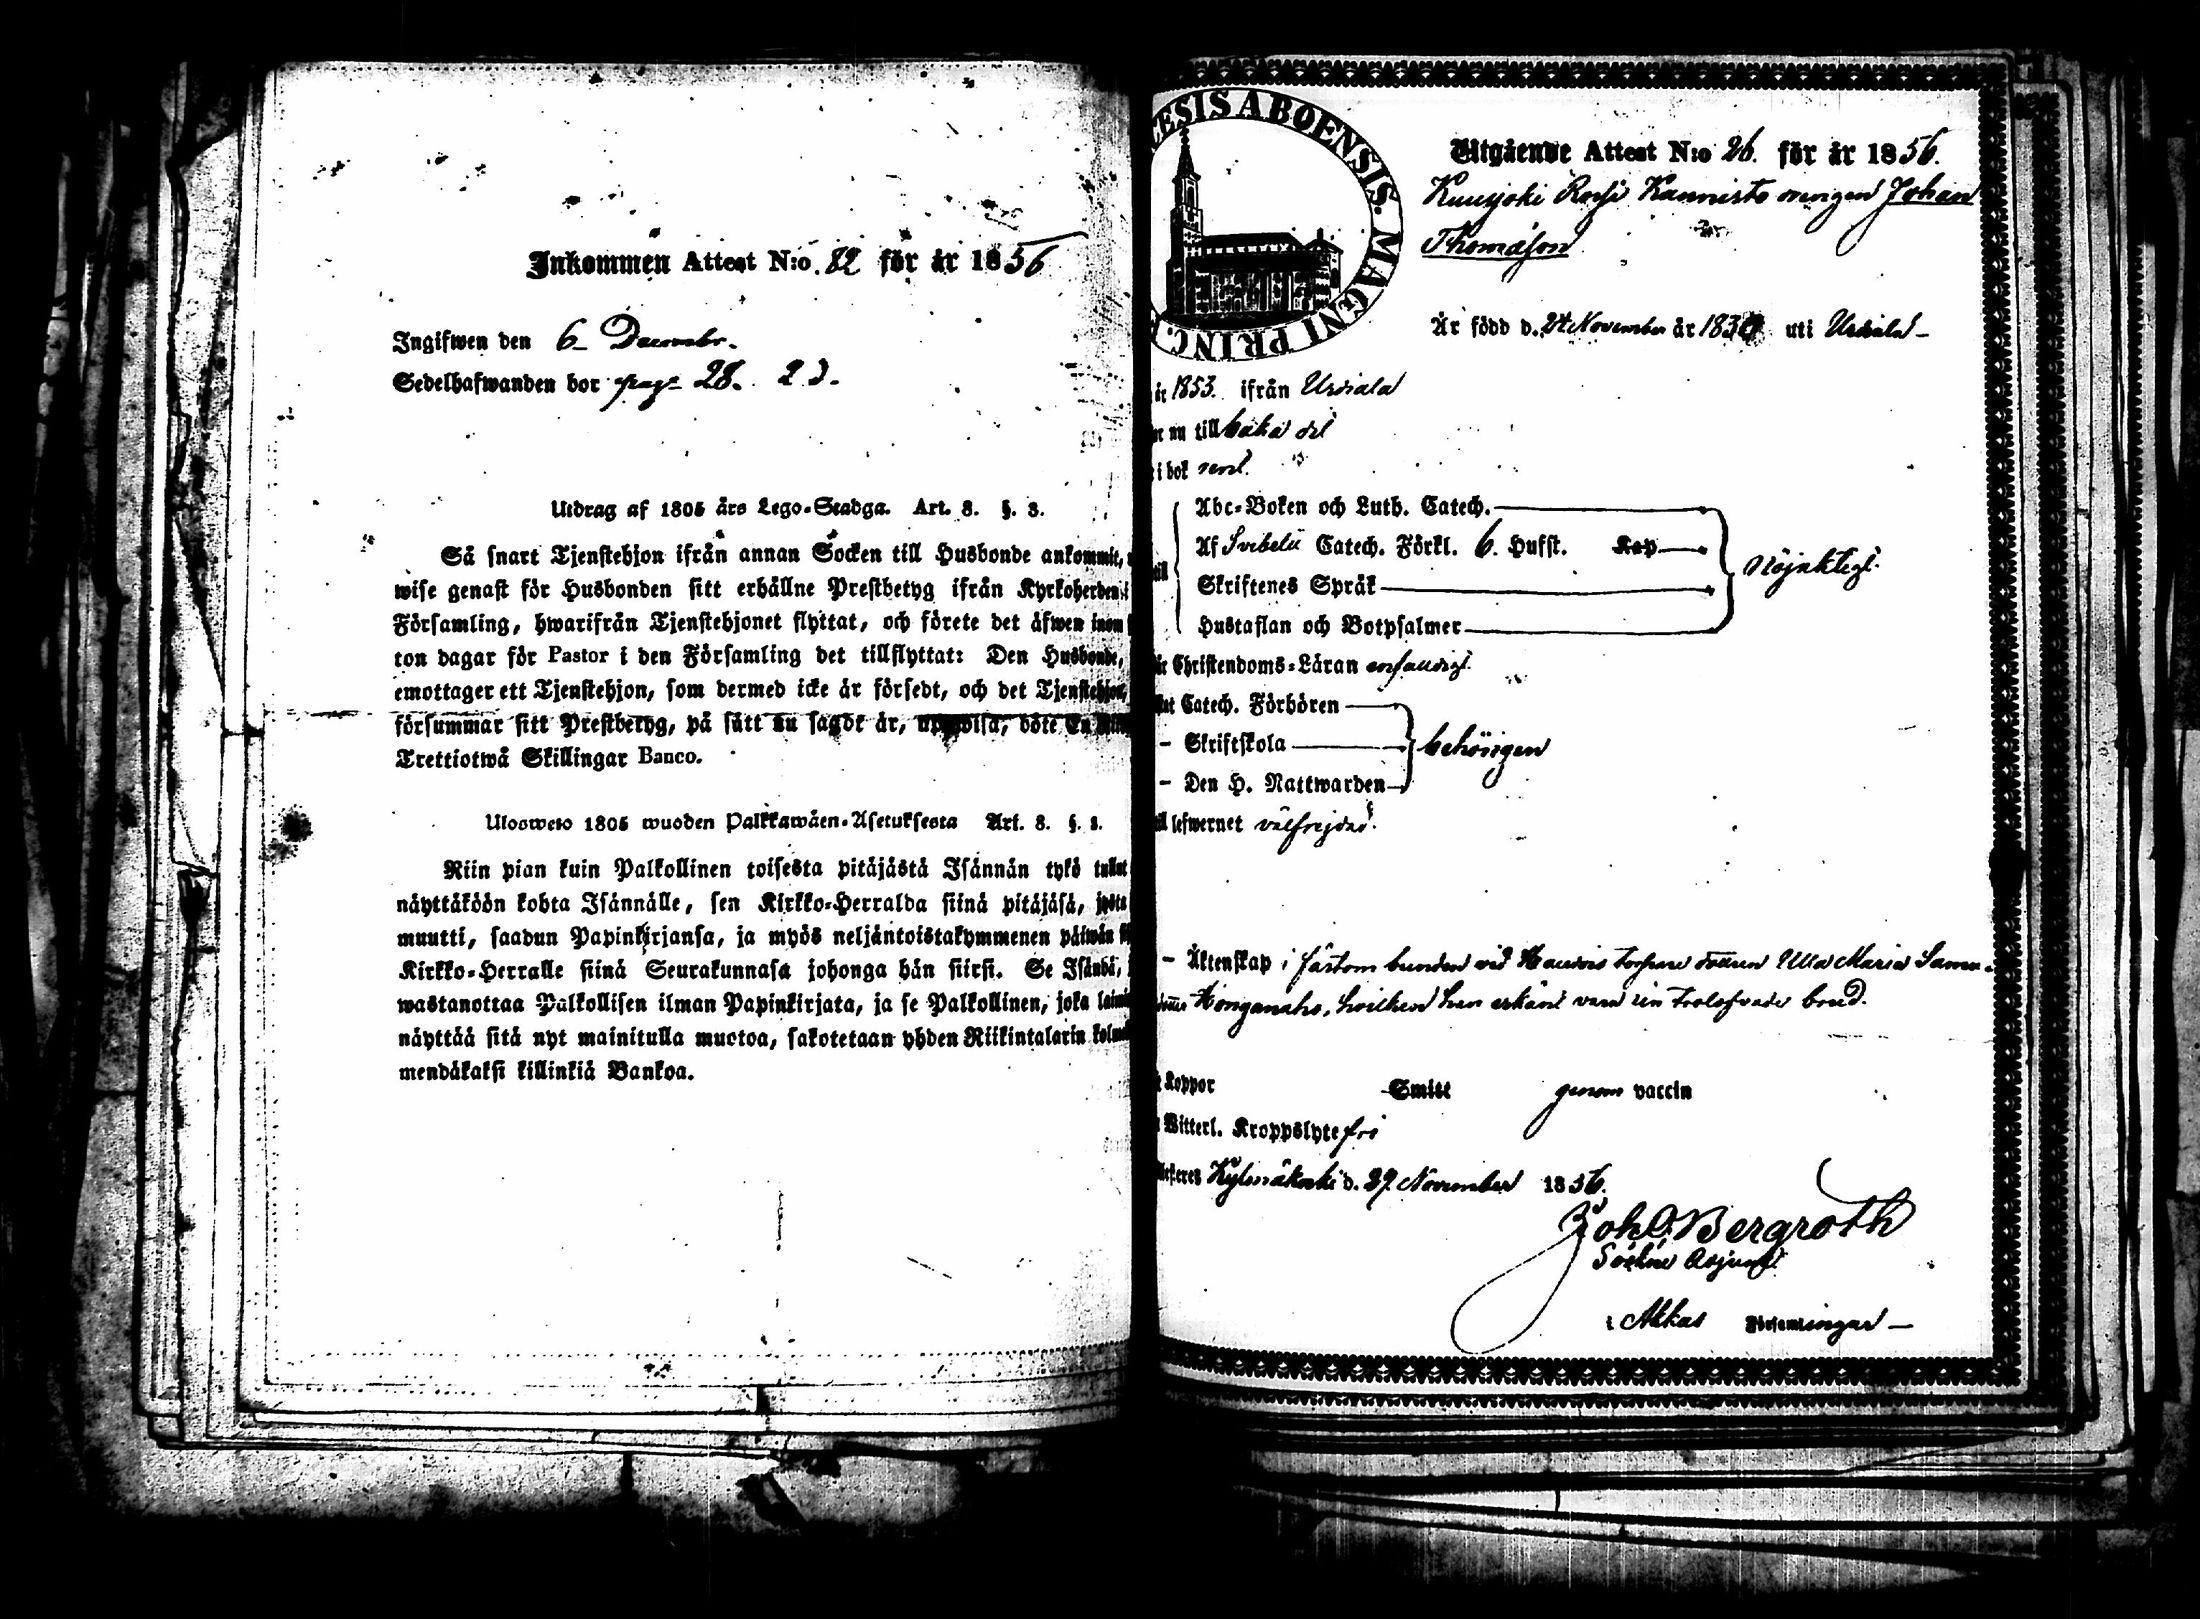 Inkommen Attest N:o 82 för år 1856
Ingifwen den 6 Decembr.
Sedelhafwanden bor pag. 28.
Utdrag af 1805 års Lego-Stadga. Art. 8. §. 3.
Så snart Tjenstehjon ifrån annan Socken till Husbonde ankommit,
wise genast för Husbonden sitt erhållne Prestbetyg ifrån Kyrkoherden i
Församling, hwarifrån Tjenstehjonet flyttat, och förete det äfwen inom
ton dagar för Pastor i den Församling det tillflyttat: Den Husbonde,
emottager ett Tjenstehjon, som dermed icke är försedt, och det Tjenstehjon,
försummar sitt Prestbetyg, på sätt nu sagdt är, uppwisa, böte En
Trettiotwå Skillingar Banco.
Ulosweto 1805 wuoden Palkkawäen-Asetuksesta Art. 8. §. 3.
Niin pian kuin Palkollinen toisesta pitäjästä Isännän tykö tullut
näyttäköön kohta Isännälle, sen Kirkko-Herralda siinä pitäjäsä, josta
muutti, saadun Papinkirjansa, ja myös neljäntoistakymmenen päiwän
Kirkko-Herralle siinä Seurakunnasa johonga hän siirsi. Se Isändä,
wastanottaa Palkollisen ilman Papinkirjata, ja se Palkollinen, joka
näyttää sitä nyt mainitulla muotoa, sakotetaan yhden Riikintalarin
mendäkaksi killinkiä Bankoa.
CESIS ABOENSIS. MAGNI PRINC.
Utgående Attest N:o 26. för år 1856.
Kuusjoki Kannisto drengen Johan
Thomasson
Är född d. 24 November år 1830 uti Urdiala
år 1853. ifrån Urdiala
nu till baka dit
i bok rent.
Abc-Boken och Luth. Catech.
Af Svebelii Catech. Förkl. 6. Hufst. Kap
Skriftenes Språk
Hustaflan och Botpsalmer
nöjaktigt.
Christendoms-Läran enfaldigt.
Catech. Förhören
- Skriftskola
- Den H. Nattwarden
behörigen
lefwernet välfrejdad.
- Äktenskap i fästom bunden vid torpare dottren Ulla Maria
Honganaho, hvilken han erkänt vara sin trolofvade brud.
Koppor Smitt genom vaccin
Witterl. Kroppslyte fri
Kylmäkoski d. 27 November 1856.
Joh. O. Bergroth
Sockne Adjunct
i Akkas Församlingar